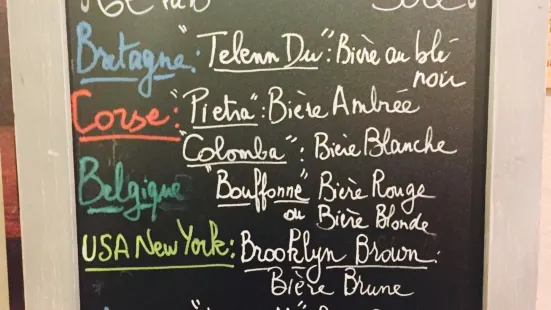 Bretagne: "Telenn Du": Bière au blé
noir
Corse: "Pietra": Bière Ambrée
"Colomba": Bière Blanche
Belgique "Bouffonne" Bière Rouge
ou Bière Blonde
USA New York: Brooklyn Brown:
Bière Brune